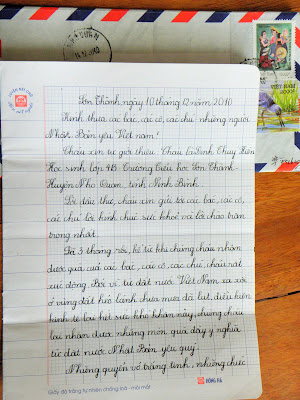 Sơn Thành, ngày 10 tháng 12 năm 2010
Kính thưa các bác, các cô, các chú những người
Nhật Bản yêu Việt Nam!
Cháu xin tự giới thiệu: Cháu là Đinh Thuý Hiền
Học sinh lớp 4B. Trường Tiểu học Sơn Thành
Huyện Nho Quan, tỉnh Ninh Bình.
Lời đầu thư, cháu xin gửi tới các bác, các cô,
các chú lời kính chúc sức khoẻ và lời chào trân
trọng nhất.
Đã 3 tháng rồi, kể từ khi chúng cháu nhận
được quà của các bác, các cô, các chú, cháu rất
xúc động. Bởi vì từ đất nước Việt Nam xa xôi
ở vùng đất hẻo lánh chưa mưa đã lụt, điều kiện
kinh tế lại hết sức khó khăn này, chúng cháu
lại nhận được những món quà đầy ý nghĩa
từ đất nước Nhật Bản yêu quý.
Những quyển vở trắng tinh, những chiếc
Giấy kẻ trắng tự nhiên chống loá - mỏi mắt
HỒNG HÀ